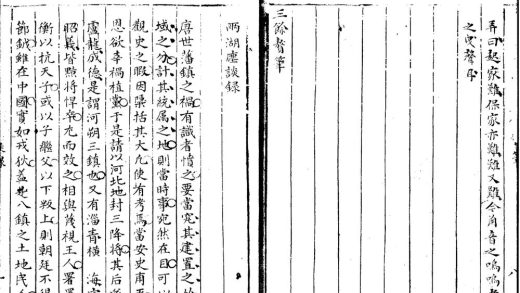 弄曰起家難保家亦難難又難今角音之嗚嗚者
之曳聲耶
三餘贅筆
兩湖塵談錄
唐世藩鎮之禍有識者憤之要當究其建置之
域之分計其統属之地則當時事宛然在目可以
觀史之暇因檃括其大凡使有考焉當安史甫
恩欲幸禍植黨于是請以河北地封三降將其后
盧龍成德是謂河朔三鎮也又有淄青橫海
昭義皆驕將悍卒尤而效之相與蔑視王人署置
衡以抗天子或以子繼父以下叛上則朝廷不得
節鉞雖在中國實如戎狄蓋是八鎮之土地